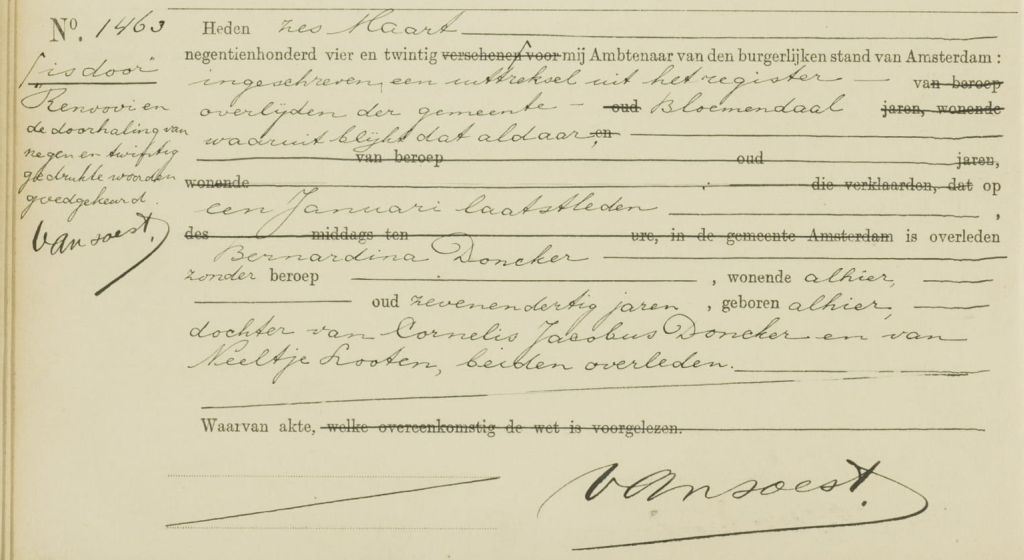 No. 1463
Heden zes Maart
negentienhonderd vier en twintig verschenen voor mij Ambtenaar van den burgerlijken stand van Amsterdam :
is door
ingeschreven, een uittreksel uit het register — van beroep
overlijden der gemeente — oud Bloemendaal jaren, wonende
waaruit blijkt dat aldaar, en
van beroep oud jaren,
wonende die verklaarden, dat op
een Januari laatstleden ,
des middags ten ure, in de gemeente Amsterdam is overleden
Bernardina Doncker
zonder beroep , wonende alhier,
oud zevenendertig jaren , geboren alhier,
dochter van Cornelis Jacobus Doncker en van
Neeltje Looten, beiden overleden.
Waarvan akte, welke overeenkomstig de wet is voorgelezen.
van Soest.
Renvooi en
de doorhaling van
negen en twintig
gedrukte woorden
goedgekeurd.
van Soest.